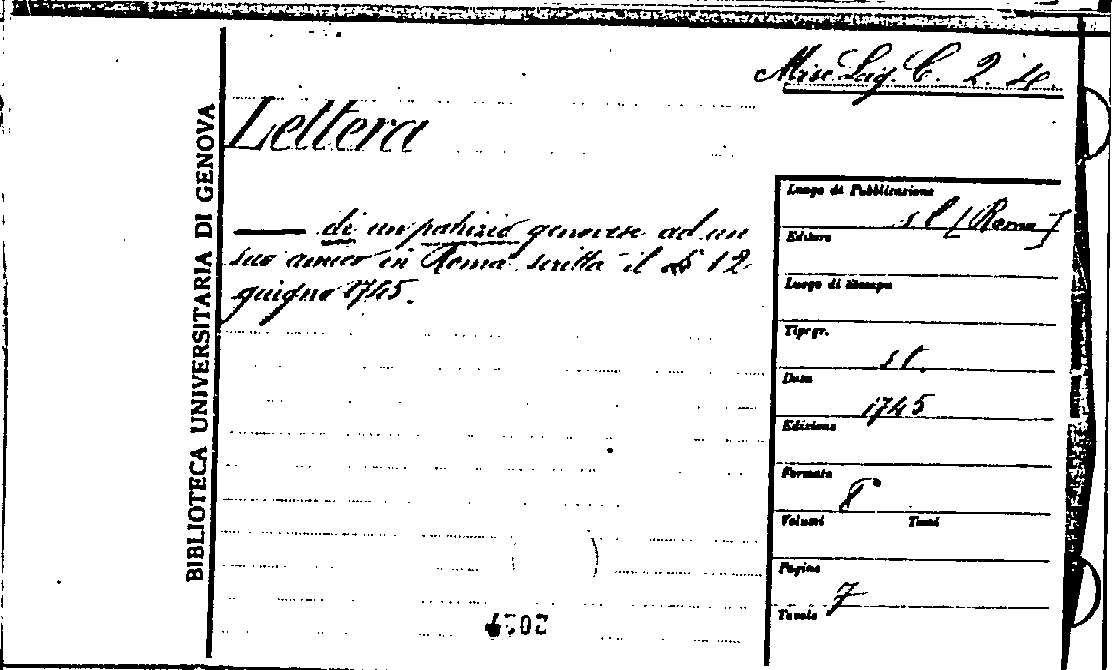 Misc. Lig. C. 2. 4.
Lettera
BIBLIOTECA UNIVERSITARIA DI GENOVA
di un patrizio genovese ad un
suo amico in Roma scritta il dì 12
giugno 1745.
Luogo di Pubblicazione
s. l. [Roma]
Editore
Luogo di stampa
Tipogr.
s. t.
Data
1745
Edizione
Formato
8°
Volumi Tomi
Pagine
7
Tavole